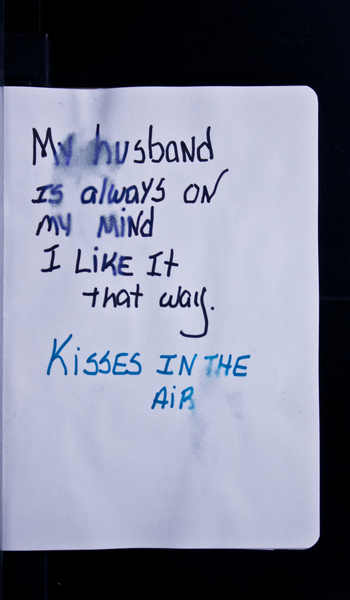 My husband
is always on
my mind
I Like It
that way.
Kisses IN THE
AiR